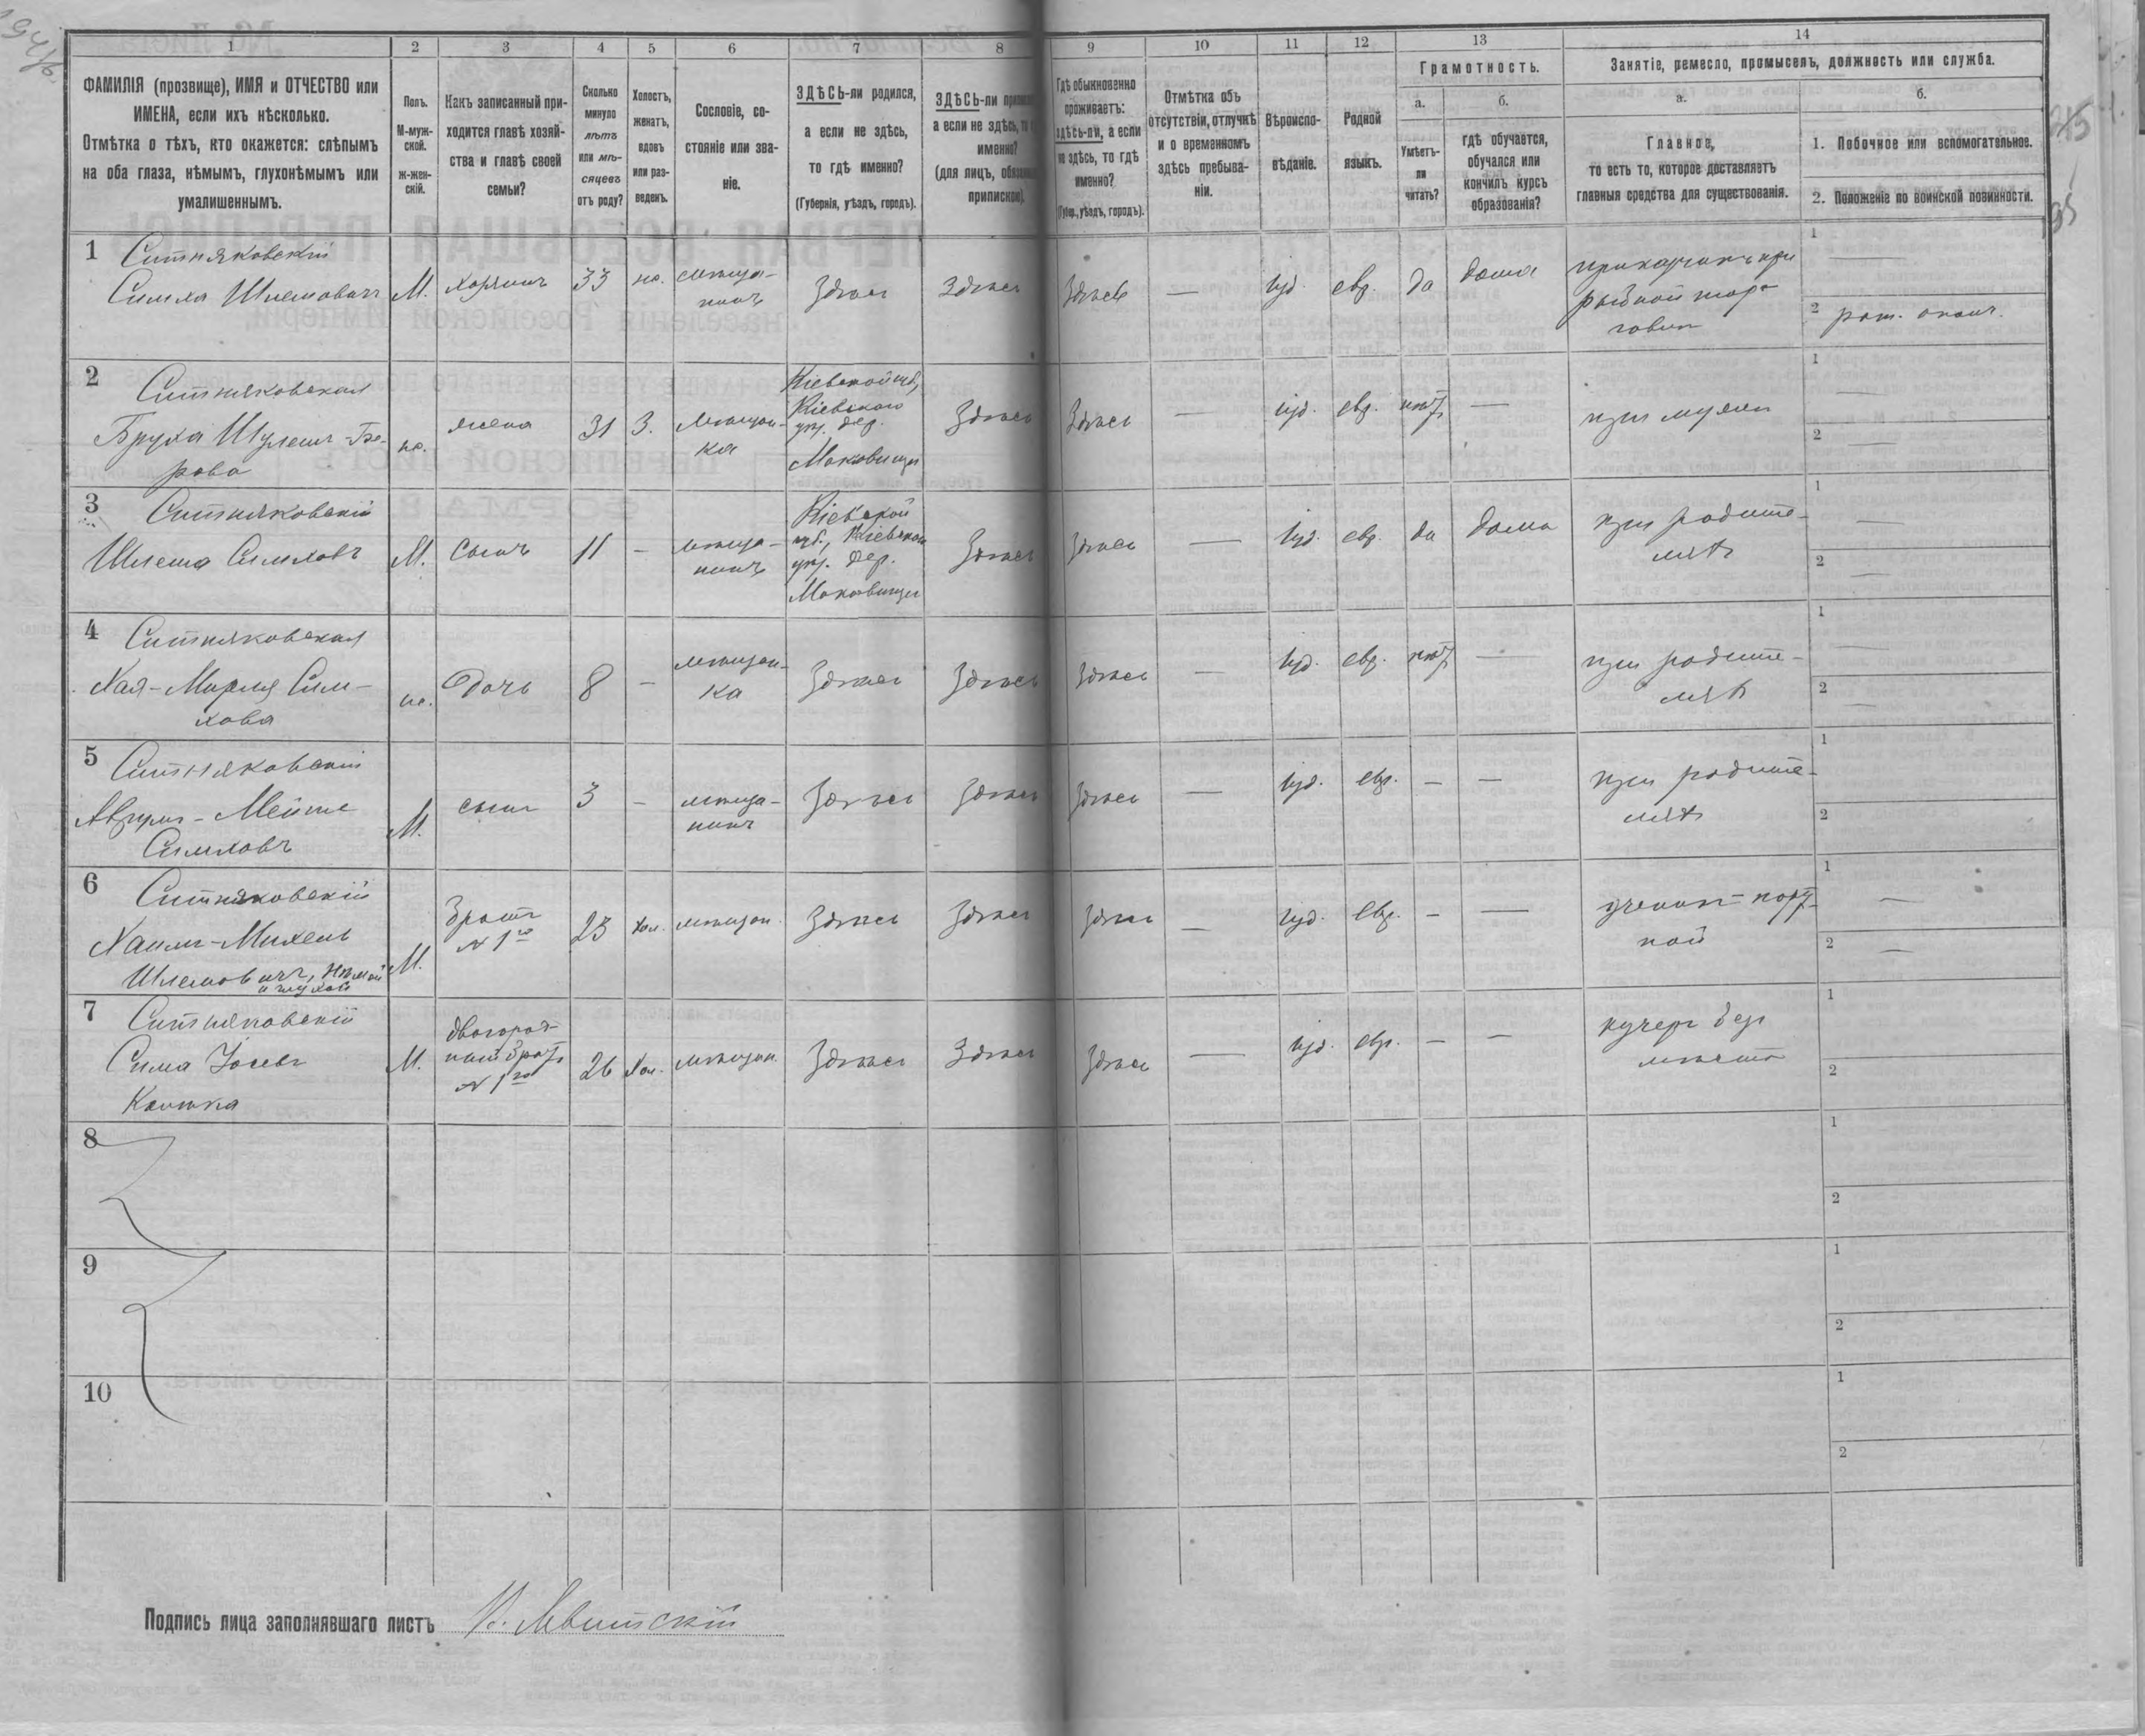 1 2 3 4 5 6 7 8 9 10 11 12 13 14
ФАМИЛІЯ (прозвище), ИМЯ и ОТЧЕСТВО или
ИМЕНА, если ихъ нѣсколько.
Отмѣтка о тѣхъ, кто окажется: слѣпымъ
на оба глаза, нѣмымъ, глухонѣмымъ или
умалишеннымъ.
Полъ.
М-муж-
ской.
ж-жен-
скій.
Какъ записанный при-
ходится главѣ хозяй-
ства и главѣ своей
семьи?
Сколько
минуло
лѣтъ
или мѣ-
сяцевъ
отъ роду?
Холостъ,
женатъ,
вдовъ
или раз-
веденъ.
Сословіе, со-
стояніе или зва-
ніе.
ЗДѢСЬ-ли родился,
а если не здѣсь,
то гдѣ именно?
(Губернія, уѣздъ, городъ).
ЗДѢСЬ-ли
а если не здѣсь,
именно?
(для лицъ,
припискою).
Гдѣ обыкновенно
проживаетъ:
здѣсь-ли, а если
не здѣсь, то гдѣ
именно?
(Губер., уѣздъ, городъ).
Отмѣтка объ
отсутствіи, отлучкѣ
и о временномъ
здѣсь пребыва-
ніи.
Вѣроиспо-
вѣданіе.
Родной
языкъ.
Грамотность.
а.
Умѣетъ-
ли
читать?
б.
гдѣ обучается,
обучался или
кончилъ курсъ
образованія?
Занятіе, ремесло, промыселъ, должность или служба.
а.
Главное,
то есть то, которое доставляетъ
главныя средства для существованія.
б.
1. Побочное или вспомогательное.
2. Положеніе по воинской повинности.
1 Ситняковскій
Симха Шлемовичъ М. хозяинъ 33 же. мѣща-
нинъ Здѣсь Здѣсь Здѣсь — іуд. евр. да дома
приказчикъ при
рыбной тор-
говли
1 —
2 рат. ополч.
2 Ситняковская
Бруха Шулем-Бе-
рова
же. жена 31 З. мѣщан-
ка
Кіевской губ,
Кіевского
уѣз. дер.
Маковищи
Здѣсь Здѣсь — іуд. евр. нѣтъ — при мужѣ
1 —
2 —
3 Ситняковскій
Шлема Симховъ М. сынъ 11 — мѣща-
нинъ
Кіевской
губ., Кіевского
уѣз. дер.
Маковищи
Здѣсь Здѣсь — іуд. евр. да дома при родите-
ляхъ
1 —
2 —
4 Ситняковская
Хая-Мирля Сим-
хова
же. дочь 8 — мѣщан-
ка Здѣсь Здѣсь Здѣсь — іуд. евр. нѣтъ — при родите-
ляхъ
1 —
2 —
5 Ситняковскій
Аврумъ-Мейше
Симховъ
М. сынъ 3 — мѣща-
нинъ Здѣсь Здѣсь Здѣсь — іуд. евр. — — при родите-
ляхъ
1
2
6 Ситняковскій
Хаимъ-Михель
Шлемовичъ, нѣмой
и глухой
М. Братъ
№ 1го 23 хол. мѣщан. Здѣсь Здѣсь Здѣсь — іуд. евр. — — ученикъ порт-
ной
1 —
2 —
7 Ситняковскій
Сима Іосевъ
М. двоюрод-
ный братъ
№ 1го 26 хол. мѣщан. Здѣсь Здѣсь Здѣсь — іуд. евр. — — кучеръ безъ
мѣста
1
2
8 1
2
9 1
2
10 1
2
Подпись лица заполнявшаго листъ